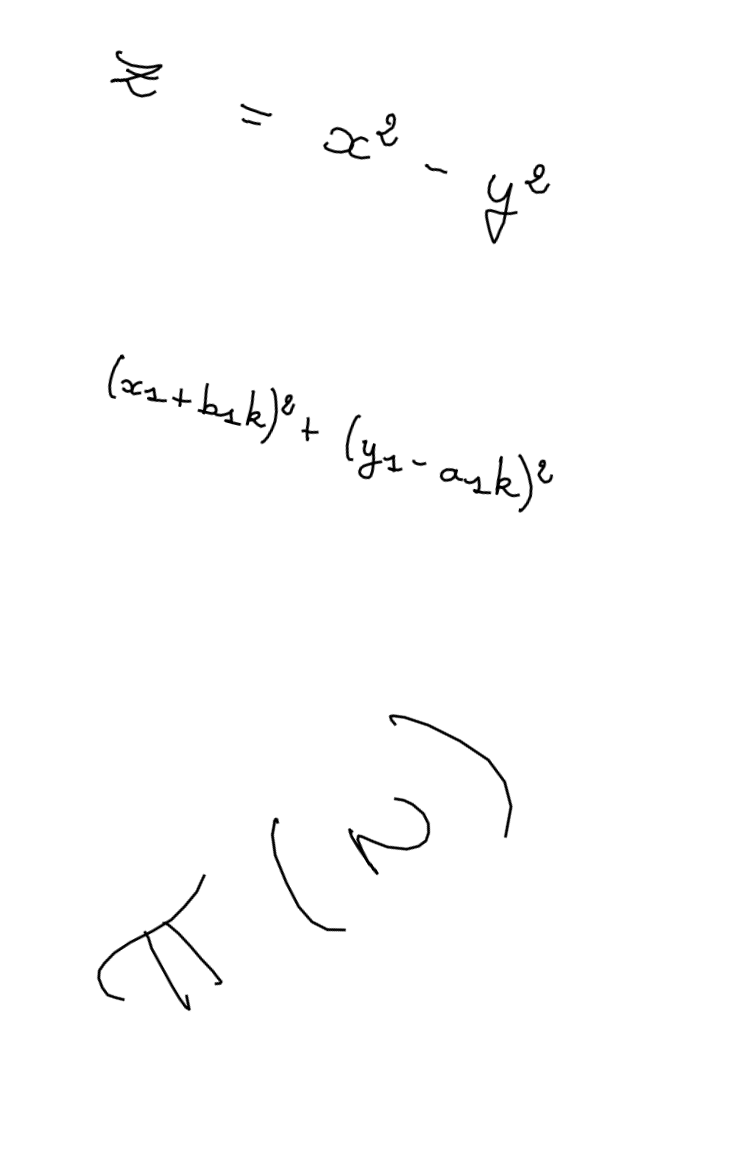 z = x² - y²
(x₁ + b₁k)² + (y₁ - a₁k)²
π(n)